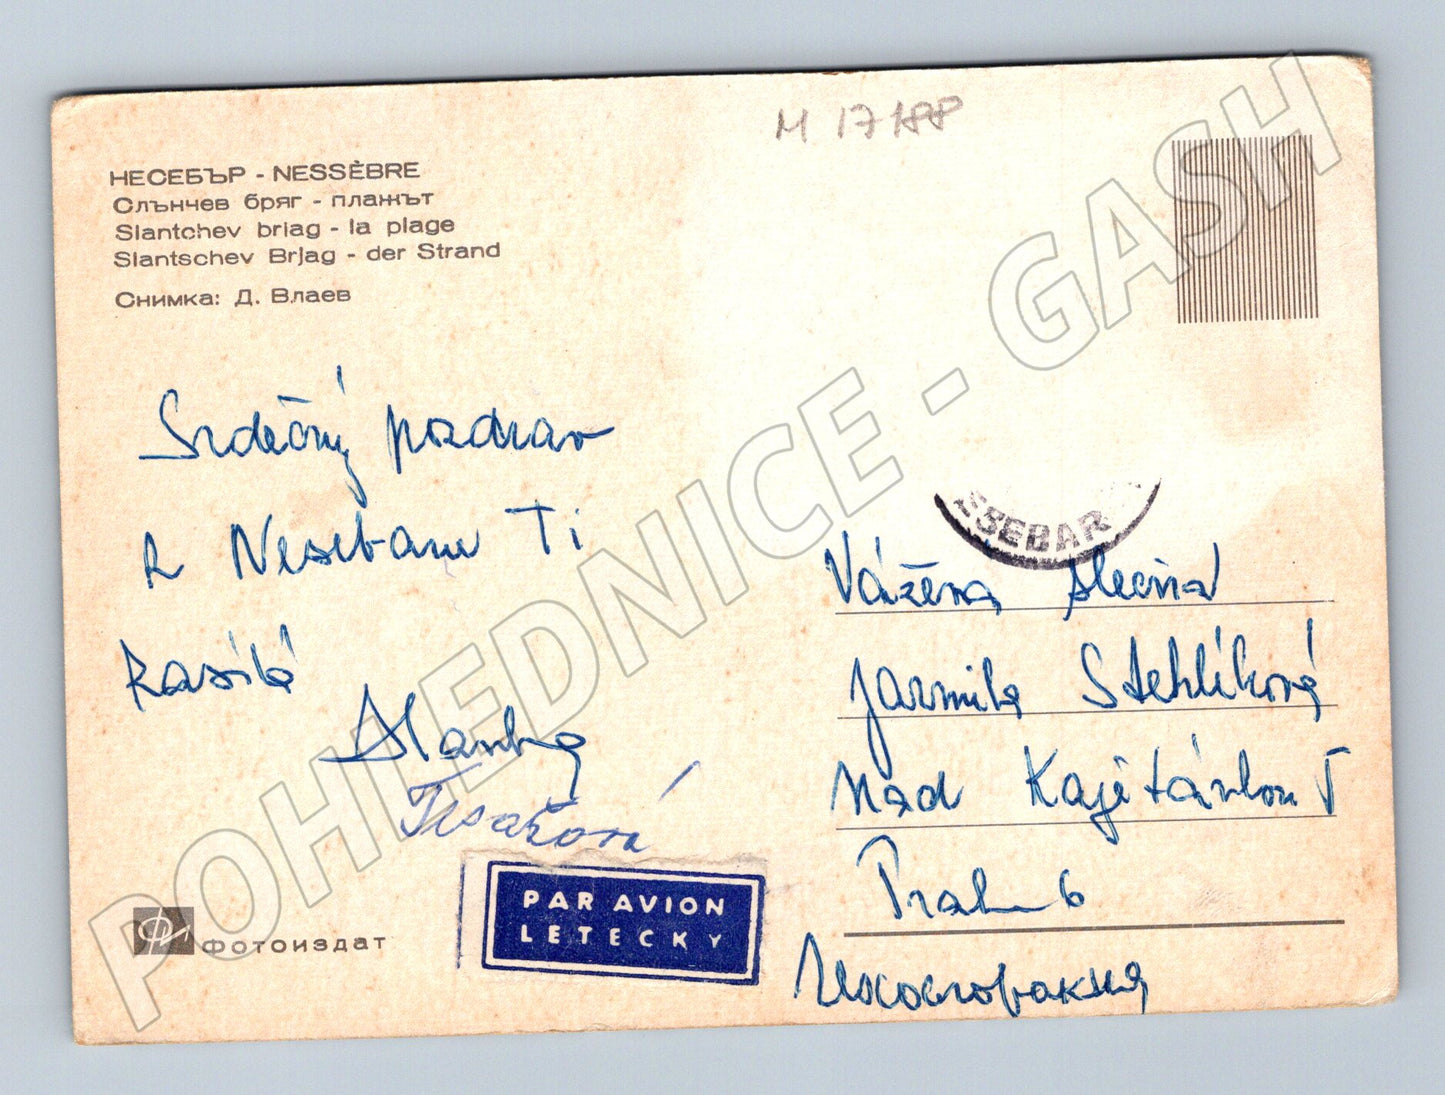 M 17188
НЕСЕБЪР - NESSÈBRE
Слънчев бряг - плажът
Slantchev briag - la plage
Slantschev Brjag - der Strand
Снимка: Д. Влаев
Srdečný pozdrav
z Nesebaru Ti
zasílá
Stanka
SEBAR
Vážená slečna
Jarmila Stehlíková
Nad Kajetánkou
Praha 6
Чехословакия
PAR AVION
LETECKY
ФОТОИЗДАТ
POHLEDNICE - GASH